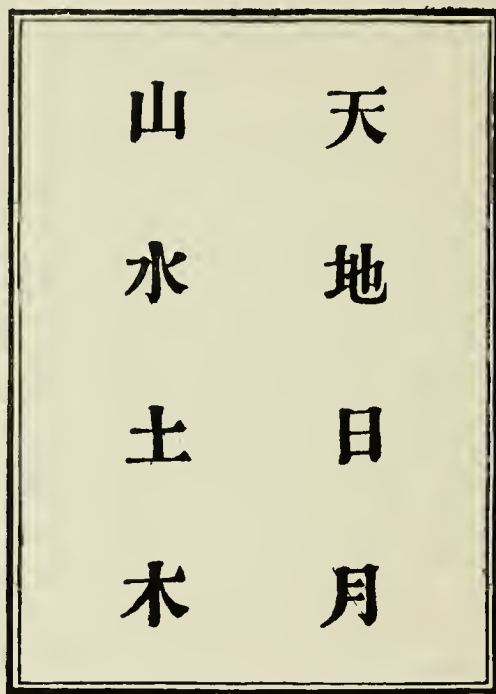 天地日月
山水土木